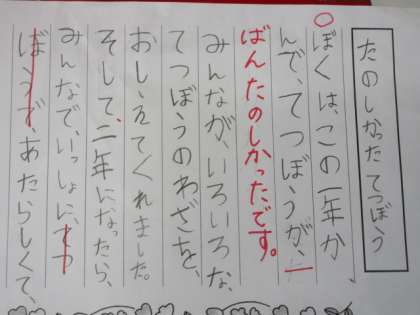 たのしかったてつぼう
ぼくは、この一年か
んで、てつぼうが、
ばんたのしかったです。
みんなが、いろいろな、
てつぼうのわざを、
おしえてくれました。
そして、二年になったら、
みんなで、いっしょに、てつ
ぼうで、あたらしくて、